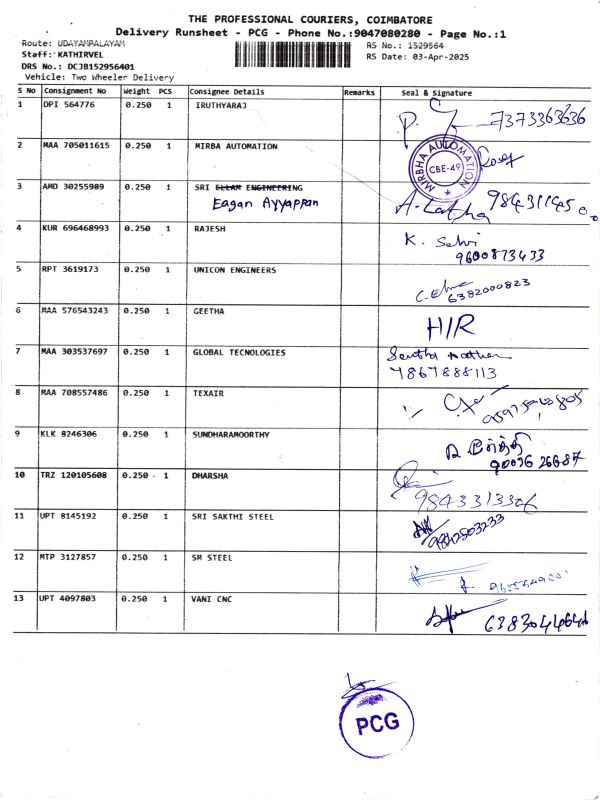 THE PROFESSIONAL COURIERS, COIMBATORE
Delivery Runsheet - PCG - Phone No.:9047080280 - Page No.:1
Route: UDAYAMPALAYAM
RS No.: 1529564
Staff: KATHIRVEL
RS Date: 03-Apr-2025
DRS No.: DCJB152956401
Vehicle: Two Wheeler Delivery
S No Consignment No Weight PCS Consignee Details Remarks Seal & Signature
1 DPI 564776 0.250 1 IRUTHYARAJ 7373363636
2 MAA 705011615 0.250 1 MIRBA AUTOMATION
MIRBHA AUTOMATION
CBE-49
3 AMD 30255989 0.250 1 SRI ELLAM ENGINEERING
Eagan Ayyappan A. Latha
4 KUR 696468993 0.250 1 RAJESH K. Selvi
9600873433
5 RPT 3619173 0.250 1 UNICON ENGINEERS
6382000823
6 MAA 576543243 0.250 1 GEETHA H/R
7 MAA 303537697 0.250 1 GLOBAL TECNOLOGIES
7867888113
8 MAA 708557486 0.250 1 TEXAIR
9 KLK 8246306 0.250 1 SUNDHARAMOORTHY
90036 26687
10 TRZ 120105608 0.250 1 DHARSHA
9843313306
11 UPT 8145192 0.250 1 SRI SAKTHI STEEL
9842503233
12 MTP 3127857 0.250 1 SM STEEL
13 UPT 4097803 0.250 1 VANI CNC 6383044646
PCG